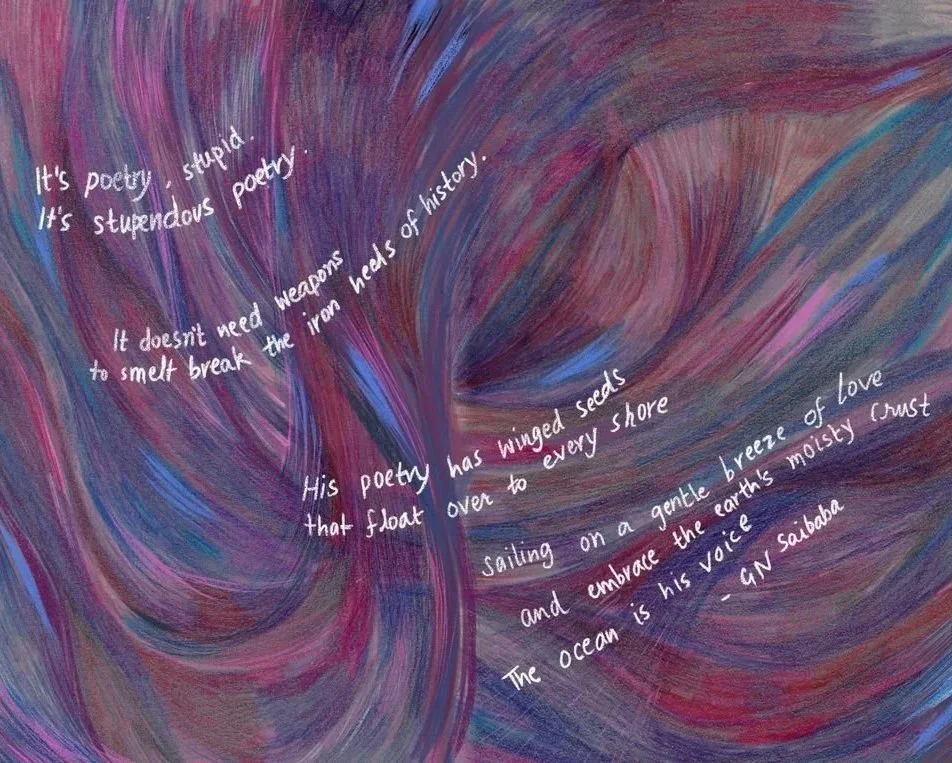 It's poetry, stupid.
It's stupendous poetry.
It doesn't need weapons
to smelt break the iron heels of history.
His poetry has winged seeds
that float over to every shore
sailing on a gentle breeze of love
and embrace the earth's moisty crust
The ocean is his voice
- GN Saibaba